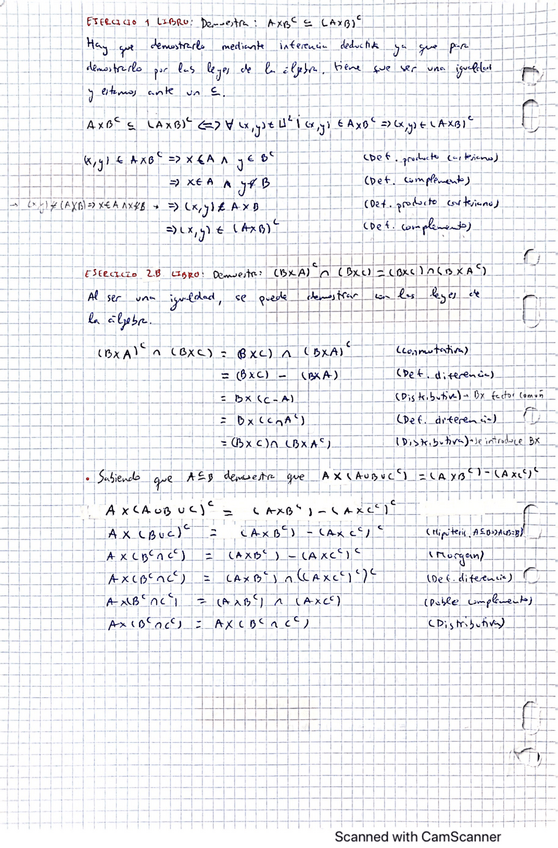 EJERCICIO 1 LIBRO: Demuestra: A×Bᶜ ⊆ (A×B)ᶜ
Hay que demostrarlo mediante inferencia deductiva ya que para
demostrarlo por las leyes de la álgebra, tiene que ver una igualdad
y estamos ante un ⊆.
A×Bᶜ ⊆ (A×B)ᶜ ⟺ ∀ (x,y) ∈ U² / (x,y) ∈ A×Bᶜ ⇒ (x,y) ∈ (A×B)ᶜ
(x,y) ∈ A×Bᶜ ⇒ x ∈ A ∧ y ∈ Bᶜ (Def. producto cartesiano)
⇒ x ∈ A ∧ y ∉ B (Def. complemento)
⇒ (x,y) ∉ A×B (Def. producto cartesiano)
⇒ (x,y) ∈ (A×B)ᶜ (Def. complemento)
EJERCICIO 2.B LIBRO: Demuestra: (B×A)ᶜ ∩ (B×C) = (B×C) ∩ (B×Aᶜ)
Al ser una igualdad, se puede demostrar con las leyes de
la álgebra.
(B×A)ᶜ ∩ (B×C) = (B×C) ∩ (B×A)ᶜ (Conmutativa)
= (B×C) - (B×A) (Def. diferencia)
= B×(C-A) (Distributiva) → B× factor común
= B×(C∩Aᶜ) (Def. diferencia)
= (B×C) ∩ (B×Aᶜ) (Distributiva) → se introduce B×
• Sabiendo que A⊆B demuestra que A×(A∪B∪C)ᶜ = (A×Bᶜ) - (A×Cᶜ)ᶜ
A×(A∪B∪C)ᶜ = (A×Bᶜ) - (A×Cᶜ)ᶜ
A×(B∪C)ᶜ = (A×Bᶜ) - (A×Cᶜ)ᶜ (Hipótesis, A⊆B→A∪B=B)
A×(Bᶜ∩Cᶜ) = (A×Bᶜ) - (A×Cᶜ)ᶜ (Morgan)
A×(Bᶜ∩Cᶜ) = (A×Bᶜ) ∩ ((A×Cᶜ)ᶜ)ᶜ (Def. diferencia)
A×(Bᶜ∩Cᶜ) = (A×Bᶜ) ∩ (A×Cᶜ) (Doble complemento)
A×(Bᶜ∩Cᶜ) = A×(Bᶜ∩Cᶜ) (Distributiva)
Scanned with CamScanner